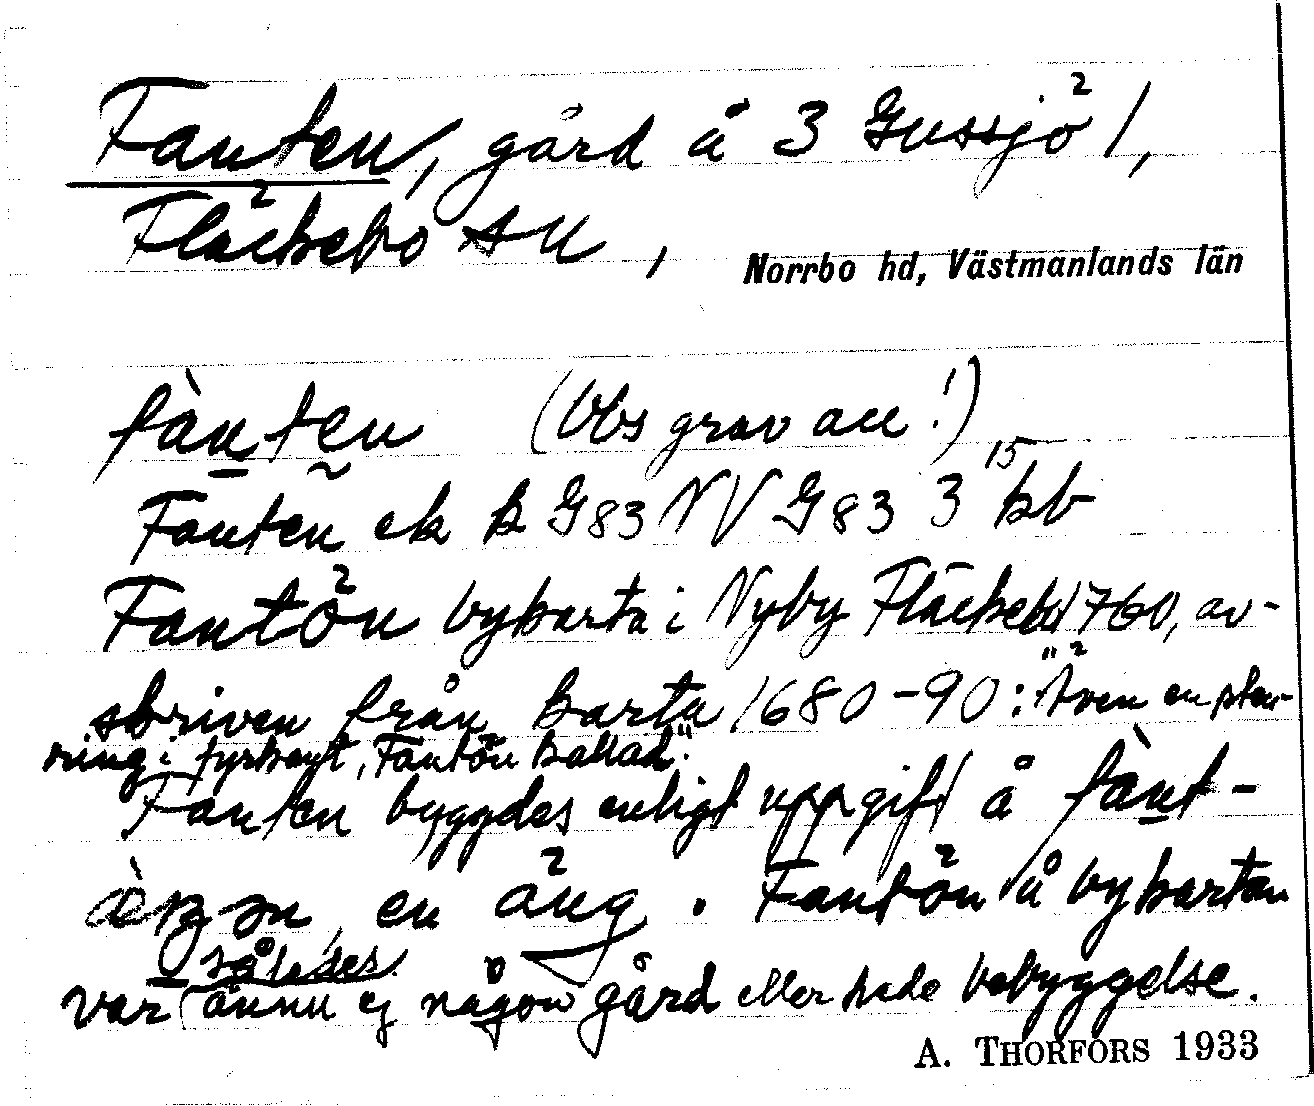 Fanten, gård å 3 Gussjö 1,
Fläckebo sn,
Norrbo hd, Västmanlands län
fànten (Obs grav acc!)
Fanten ek K G83 NV G83 3 15 kb
Fantön bykarta i Nyby Fläckebo 1760, av-
skriven från karta 1680-90: "Även en plan-
ring i fyrkant, Fantön kallad".
Fanten byggdes enligt uppgift å fànt-
en äng. Fantön å bykartan
således
var ännu ej någon gård eller hade bebyggelse.
A. THORFORS 1933